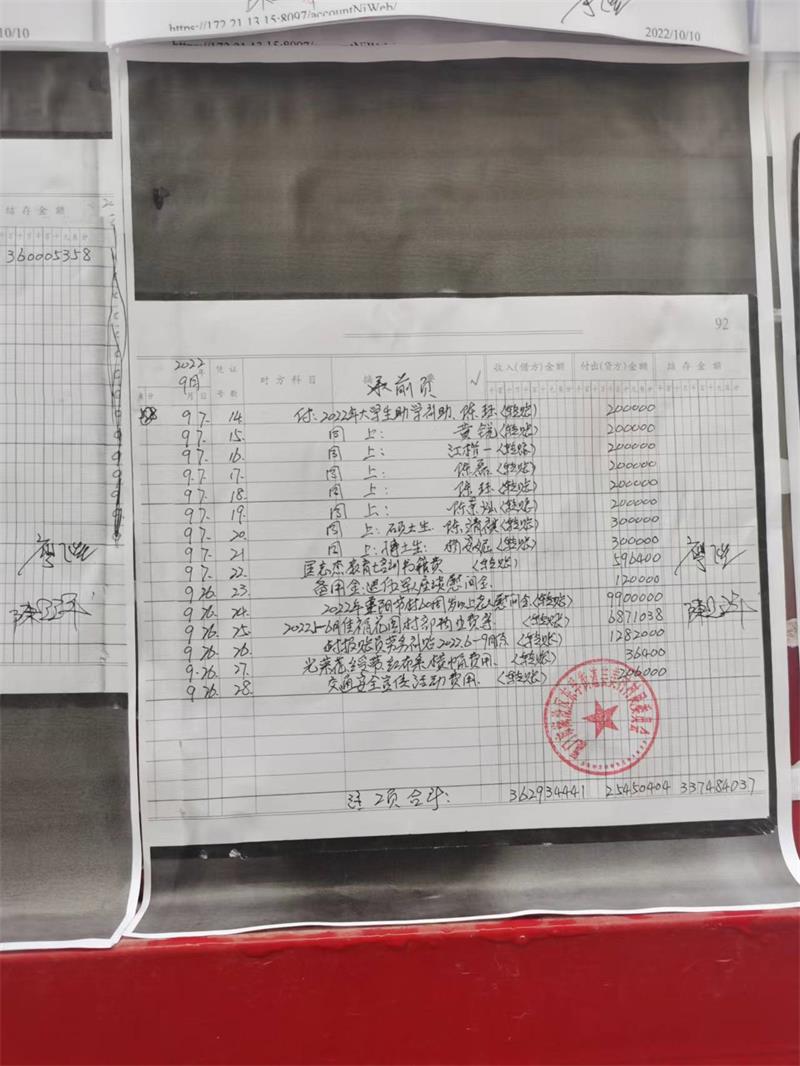 10/10
https://172.21.13.15:8097/accountNiWeb/
2022/10/10
结存金额
360005358
92
2022年
9月
凭证
号数
月 日
对方科目
承前页
√
收入(借方)金额
付出(贷方)金额
结存金额
9 7. 14 付:2022年大学生助学补助、陈 <转账> 200000
9 7. 15. 同上: 黄锐<转账> 200000
9 7. 16. 同上: 江楷一<转账> 200000
9 7. 17. 同上: 陈磊<转账> 200000
9 7. 18. 同上: 陈 <转账> 200000
9 7. 19. 同上: <转账> 200000
9 7. 20. 同上:硕士生: 陈清 <转账> 300000
9 7. 21 同上:博士生: 杨 <转账> 300000
9 7. 22. 匡志杰教育培训书籍费 <转账> 596400
9 26. 23. 备用金退伍军人座谈慰问金. 120000
9 26. 24. 2022年重阳节村60周岁以上老人慰问金.<转账> 9900000
9 26. 25. 2022 5-6月佳禧花园村部物业费等. <转账> 6871038
9 26. 26. 村报账员劳务补贴2022.6-9月份 <转账> 1282000
9 26. 27. 光荣花、绶带、红布条、横幅费用. <转账> 36400
9 26. 28. 交通安全宣传活动费用. <转账>
过次页合计: 362934441 25450404 337484037